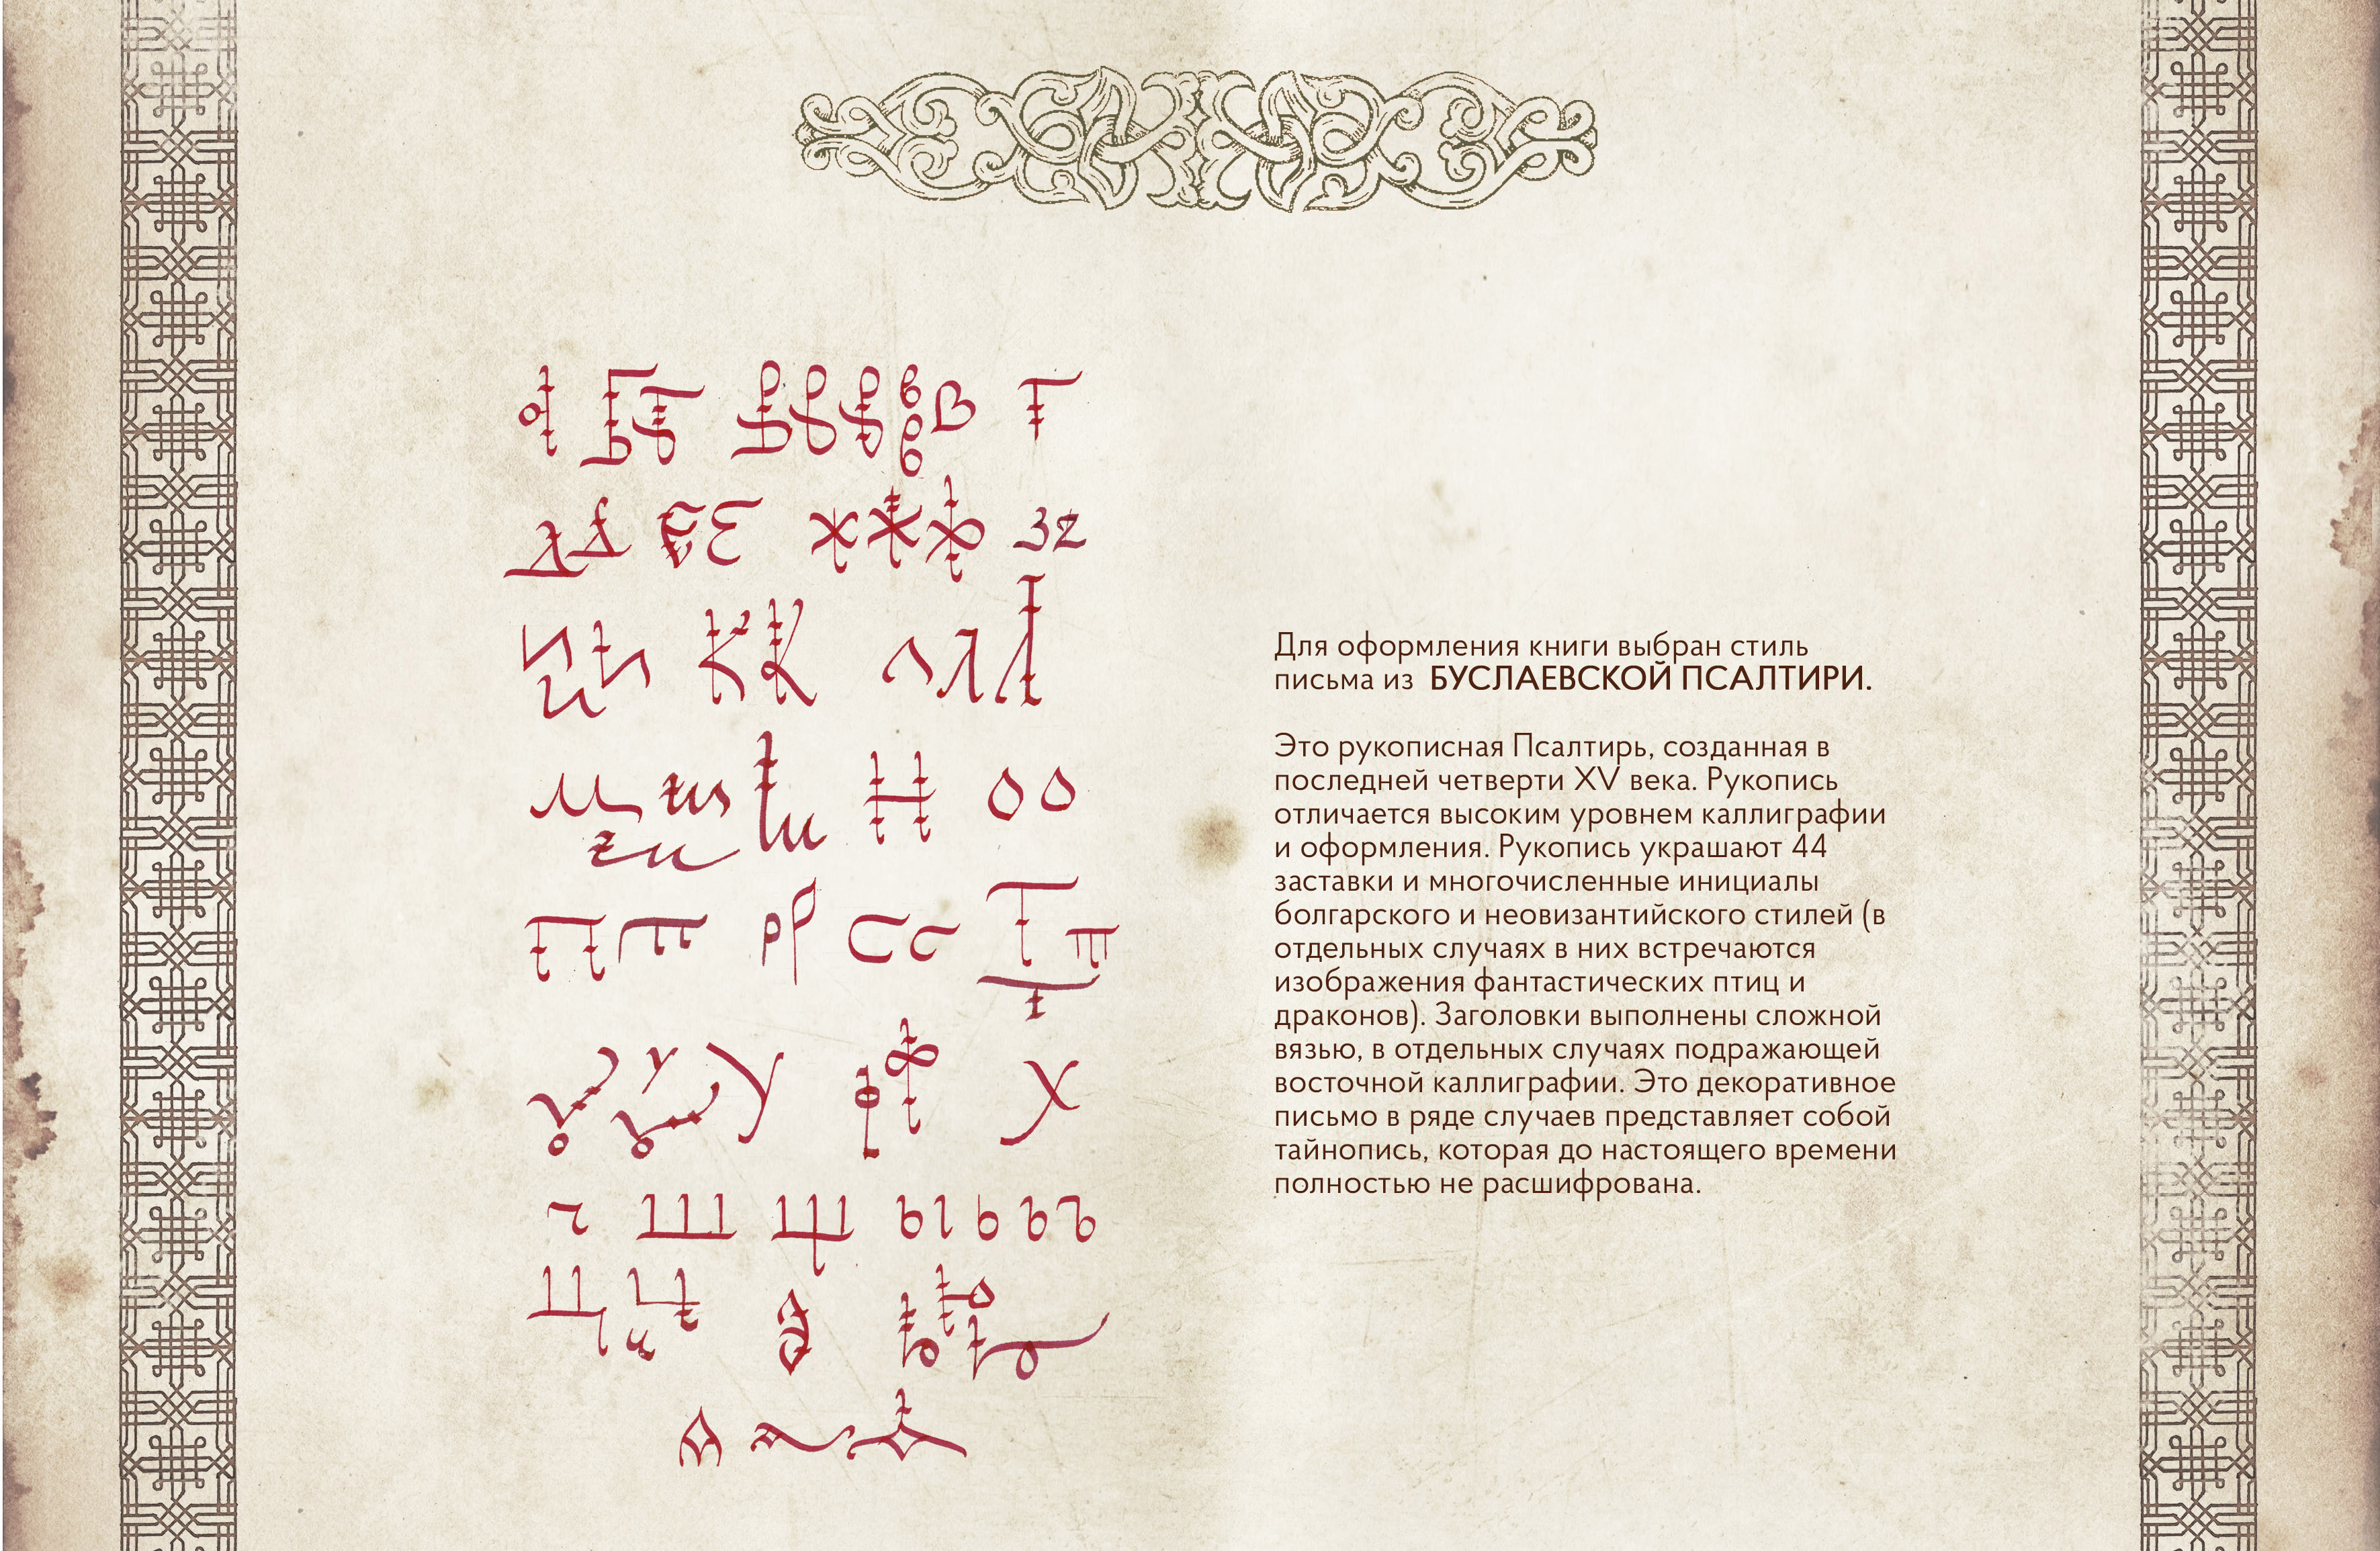 а б б в в в в в г
д д е е ж ж ж з з
и и и к к л л л
м м м м н о о
п п р р с с т т т
у у у у ф ф х
ч ш щ ы ь ь ъ
ц ц ц э ю ю ю
я я я
Для оформления книги выбран стиль
письма из БУСЛАЕВСКОЙ ПСАЛТИРИ.
Это рукописная Псалтирь, созданная в
последней четверти XV века. Рукопись
отличается высоким уровнем каллиграфии
и оформления. Рукопись украшают 44
заставки и многочисленные инициалы
болгарского и неовизантийского стилей (в
отдельных случаях в них встречаются
изображения фантастических птиц и
драконов). Заголовки выполнены сложной
вязью, в отдельных случаях подражающей
восточной каллиграфии. Это декоративное
письмо в ряде случаев представляет собой
тайнопись, которая до настоящего времени
полностью не расшифрована.